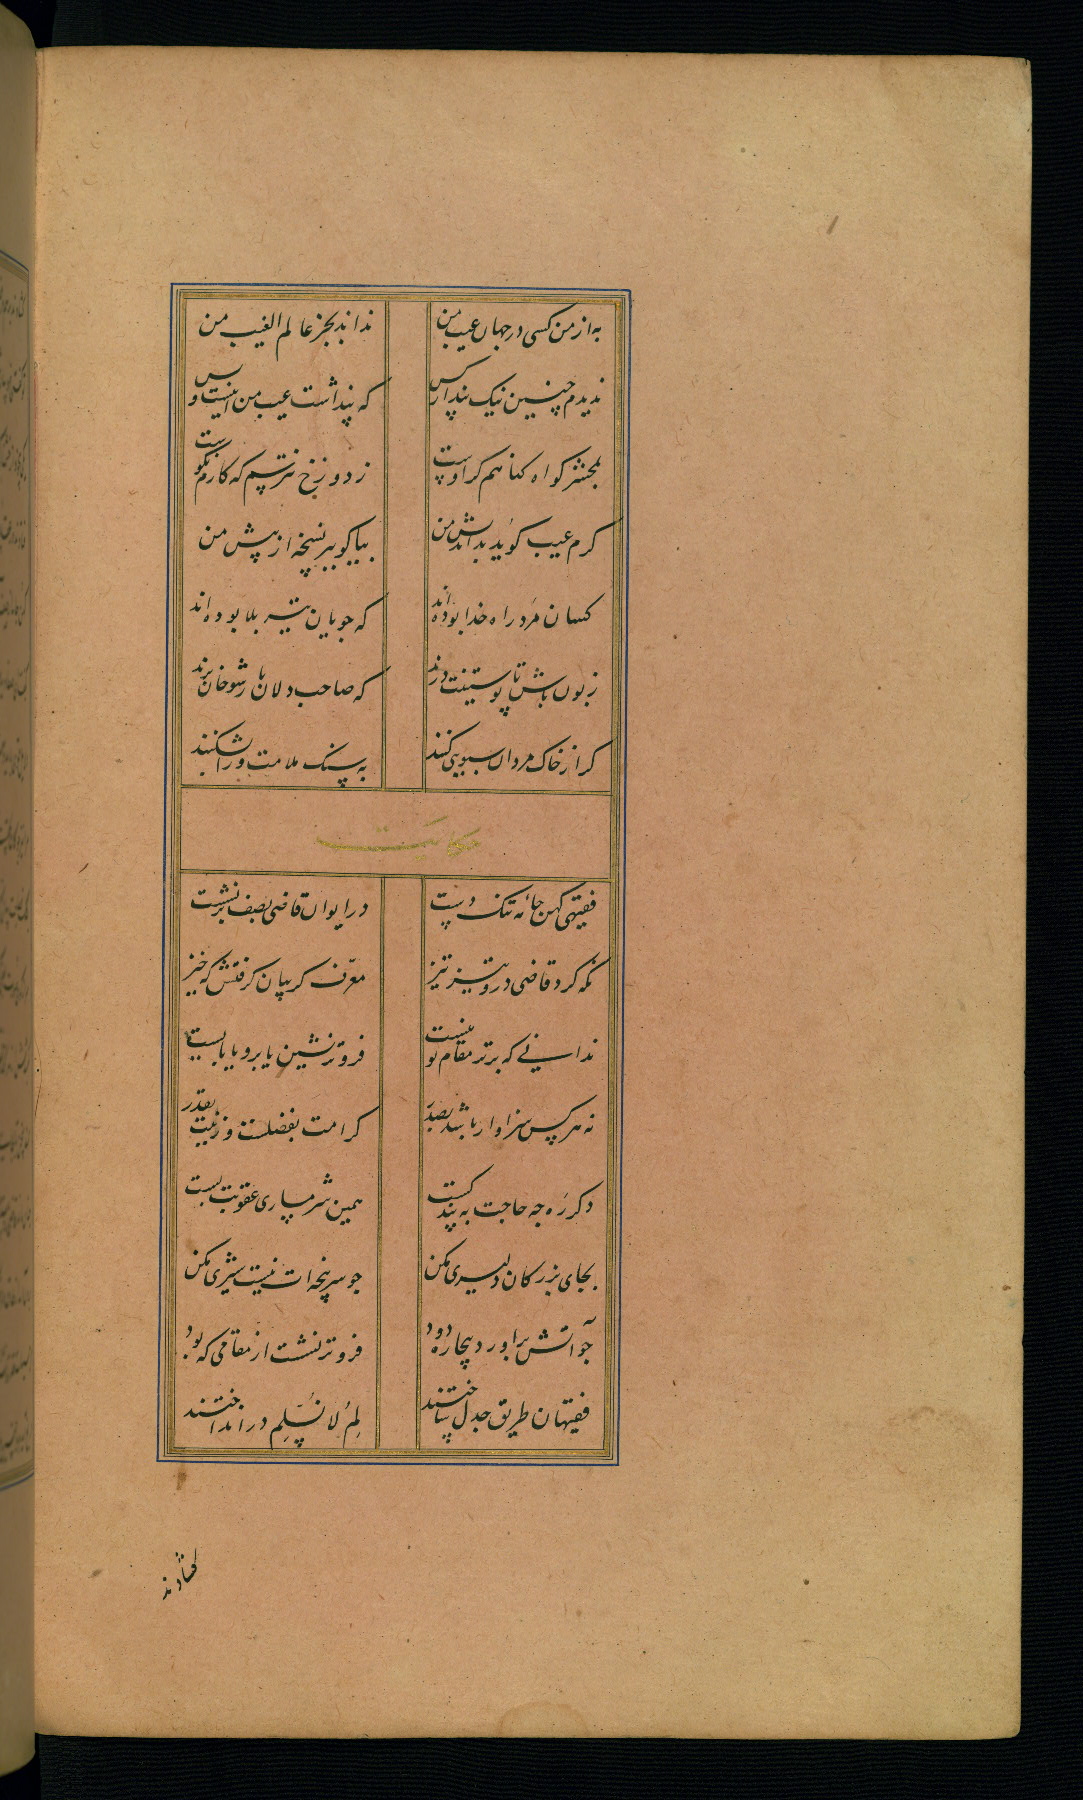 به از من کسی در جهان عیب من ندانند بجز عالم الغیب من
ندیدم چنین نیک پندار کس که پنداشت عیب من اینست و بس
بمحشر کواه کناهم کر اوست ز دوزخ نترسم که کارم نکوست
کرم عیب کوید بداندیش من بیا کو ببر نسخه از پیش من
کسان مرد راه خدا بوده‌اند که جویان تیر بلا بوده‌اند
زبون باش تا پوستینت درند که صاحبدلان بار شوخان برند
کر از خاک مردان سبویی کنند به سنک ملامت ورا بشکنند
حکایت
فقیهی کهن جامه تنک دست در ایوان قاضی بصف بر نشست
نکه کرد قاضی درو تیز تیز معرف کریبان کرفتش که خیز
ندانی که برتر مقام تو نیست فروتر نشین یا برو یا بایست
نه هر کس سزاوار باشد بصدر کرامت بفضلست و زینت بقدر
دکر ره چه حاجت به پند کست همین شرمساری عقوبت بست
بجای بزرکان دلیری مکن چو سرپنجه ات نیست شیری مکن
چو آتش براورد بیچاره دود فروتر نشست از مقامی که بود
فقیهان طریق جدل ساختند لم لا نسلم در انداختند
کشادند